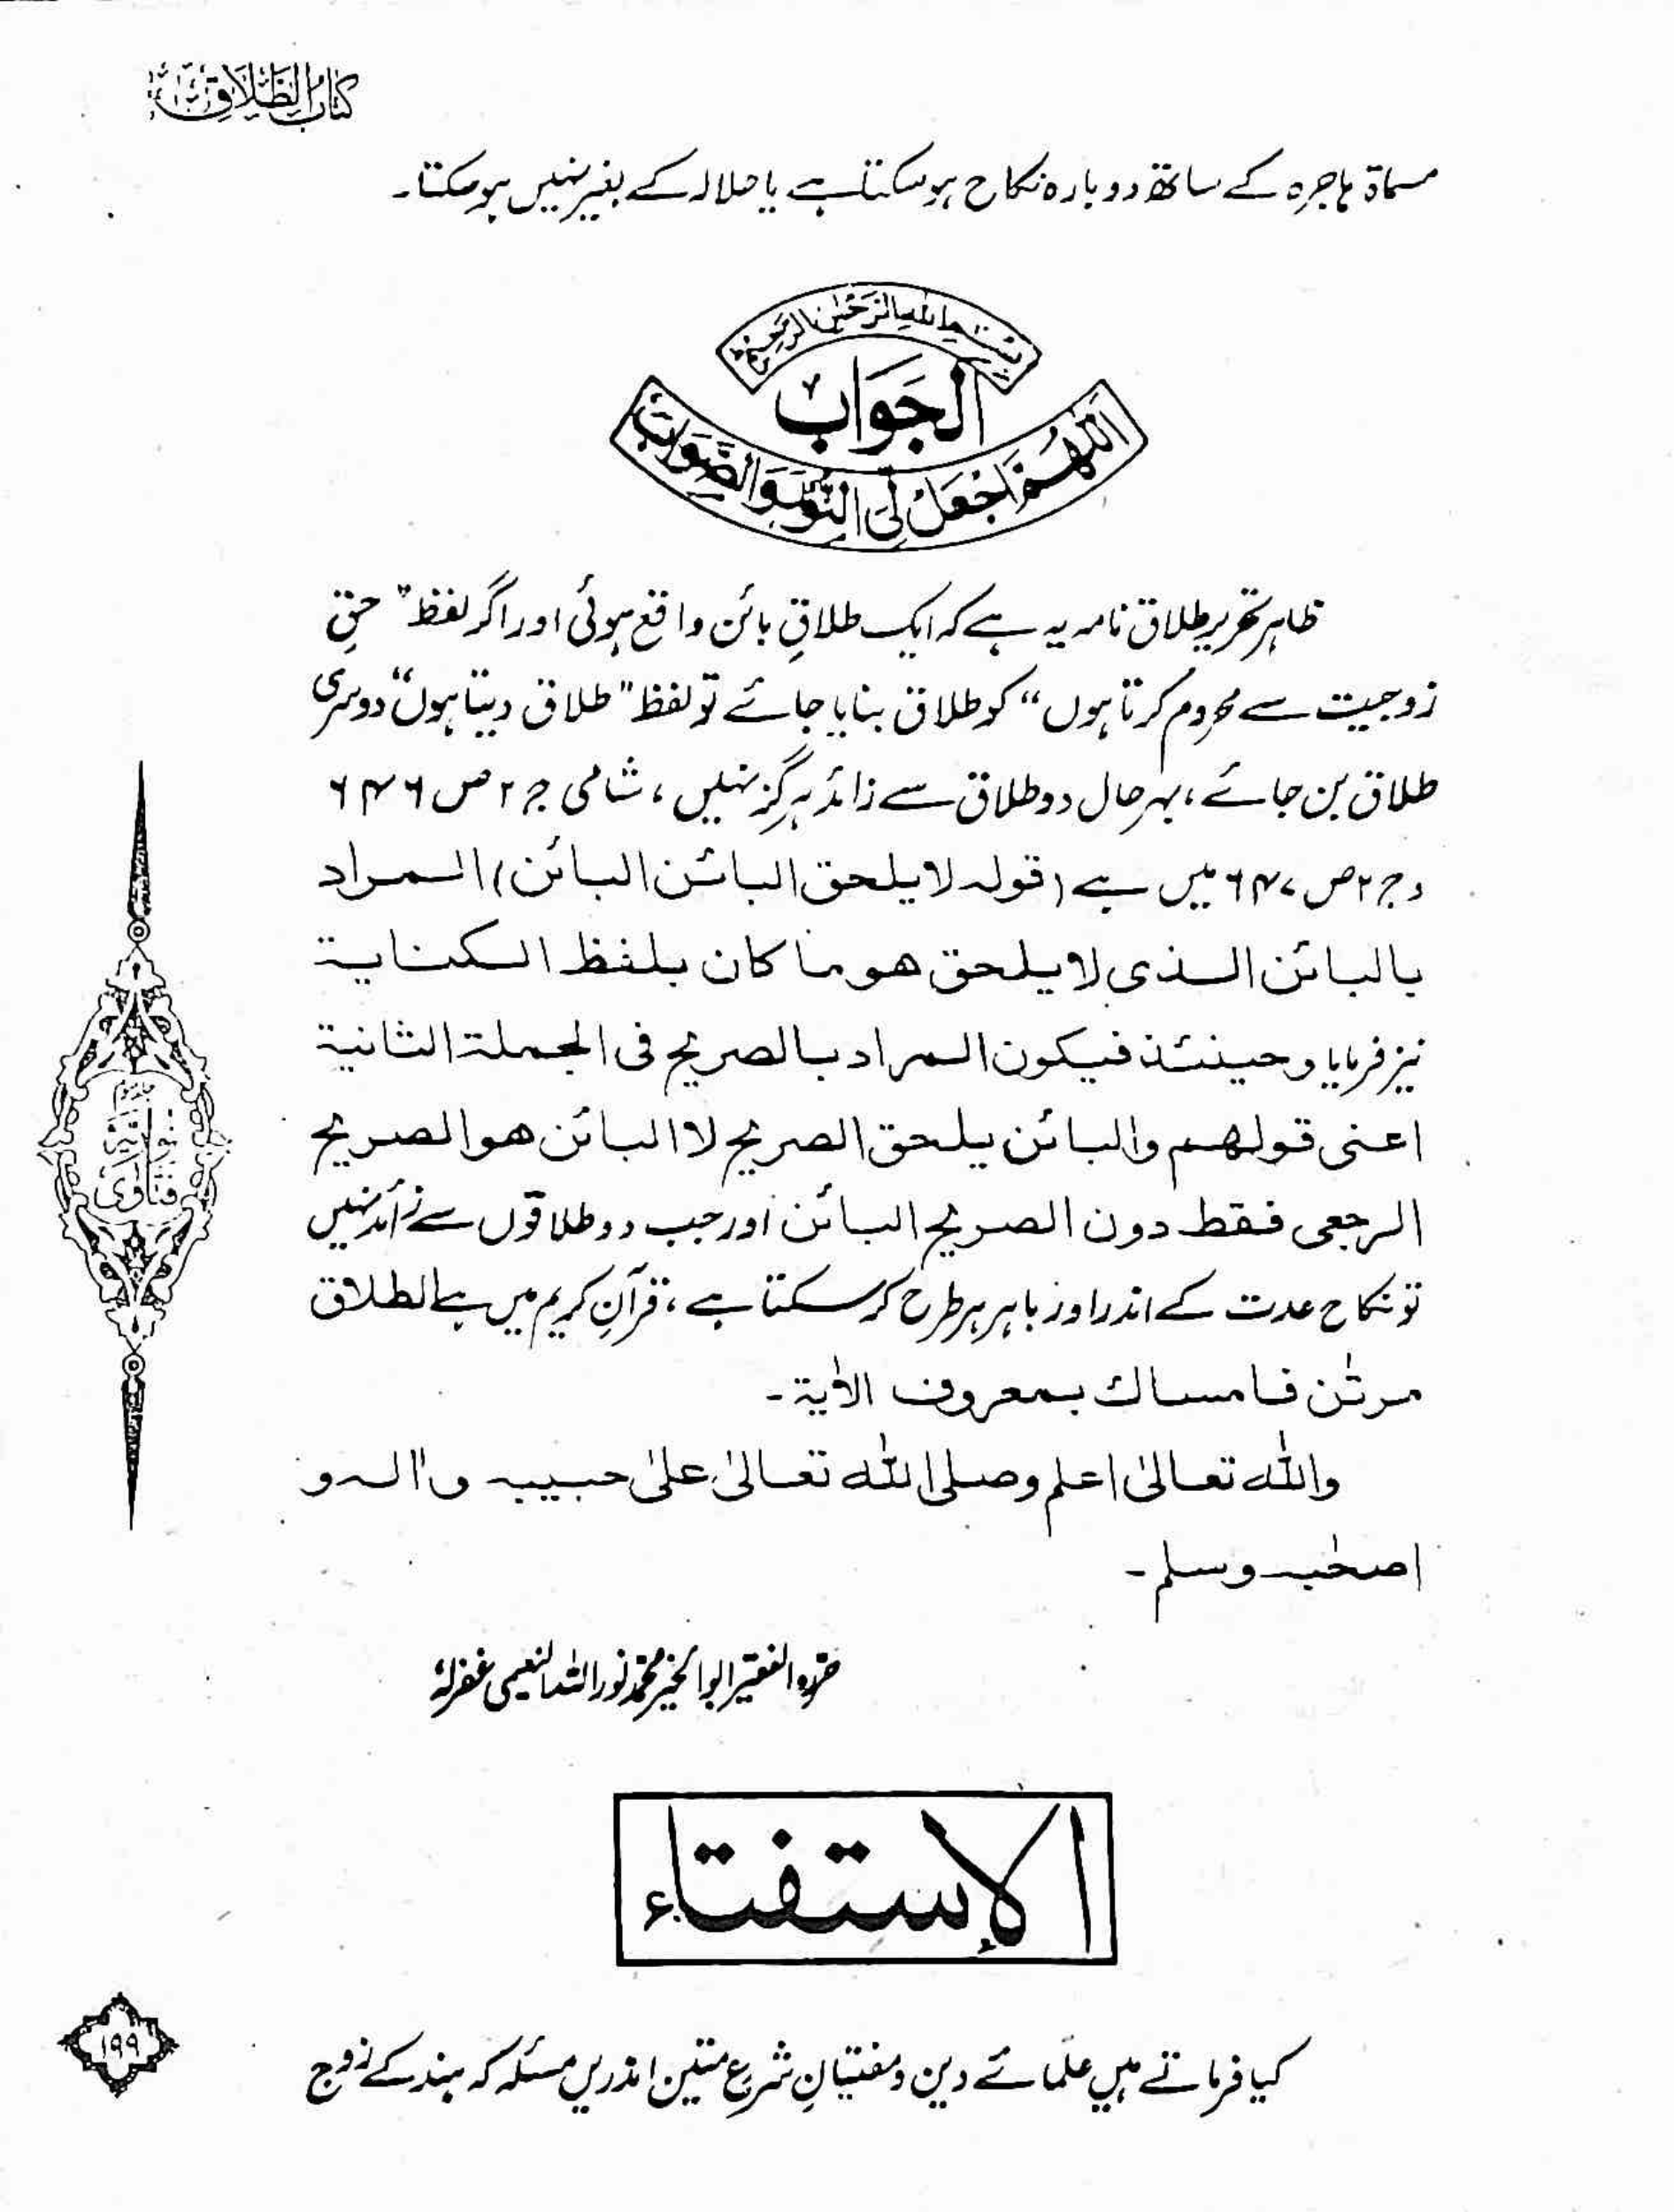 کتاب الطلاق
مسماۃ ہاجرہ کے ساتھ دوبارہ نکاح ہو سکتا ہے یا حلالہ کے بغیر نہیں ہو سکتا۔
بسم اللہ الرحمن الرحیم
الجَوَاب
اللهم اجعل لي النور والصواب
ظاہر تحریر طلاق نامہ یہ ہے کہ ایک طلاقِ بائن واقع ہوئی اور اگر لفظ "حقِ
زوجیت سے محروم کرتا ہوں" کو طلاق بنایا جائے تو لفظ "طلاق دیتا ہوں" دوسری
طلاق بن جائے، بہرحال دو طلاق سے زائد ہرگز نہیں، شامی ج ۲ ص ۶۴۶
و ج ۲ ص ۶۴۷ میں ہے (قولہ لا یلحق البائن البائن) المراد
بالبائن الذی لا یلحق ھو ما کان بلفظ الکنایة
نیز فرمایا وحینئذ فیکون المراد بالصریح فی الجملة الثانیة
اعنی قولھم والبائن یلحق الصریح لا البائن ھو الصریح
الرجعی فقط دون الصریح البائن اور جب دو طلاقوں سے زائد نہیں
تو نکاح عدت کے اندر اور باہر ہر طرح کر سکتا ہے، قرآنِ کریم میں ہے الطلاق
مرتٰن فامساك بمعروف الاٰیة۔
واللہ تعالیٰ اعلم وصلی اللہ تعالیٰ علیٰ حبیبہ واٰلہ و
اصحٰبہ وسلم۔
حررہ الفقیر ابو الخیر محمد نور اللہ النعیمی غفرلہٗ
الإستفتاء
کیا فرماتے ہیں علمائے دین و مفتیانِ شرعِ متین اندریں مسئلہ کہ ہند کے زوج
فتاوٰی
نوریہ
۱۹۹